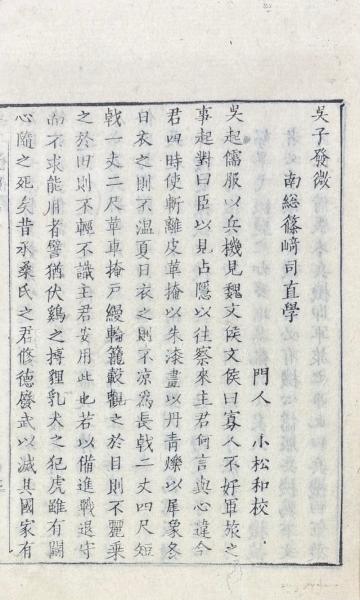 吳子發微
南総篠﨑司直學
門人 小松和校
吳起儒服以兵機見魏文侯文侯曰寡人不好軍旅之
事起對曰臣以見占隱以往察來主君何言與心違今
君四時使斬離皮革掩以朱漆畫以丹青爍以犀象冬
日衣之則不温夏日衣之則不凉為長戟二丈四尺短
戟一丈二尺革車掩戸縵輪籠轂觀之於目則不麗乗
之於田則不輕不識主君安用此也若以備進戰退守
而不求能用者譬猶伏鷄之搏狸乳犬之犯虎雖有鬭
心隨之死矣昔承桑氏之君修德廢武以滅其國家有